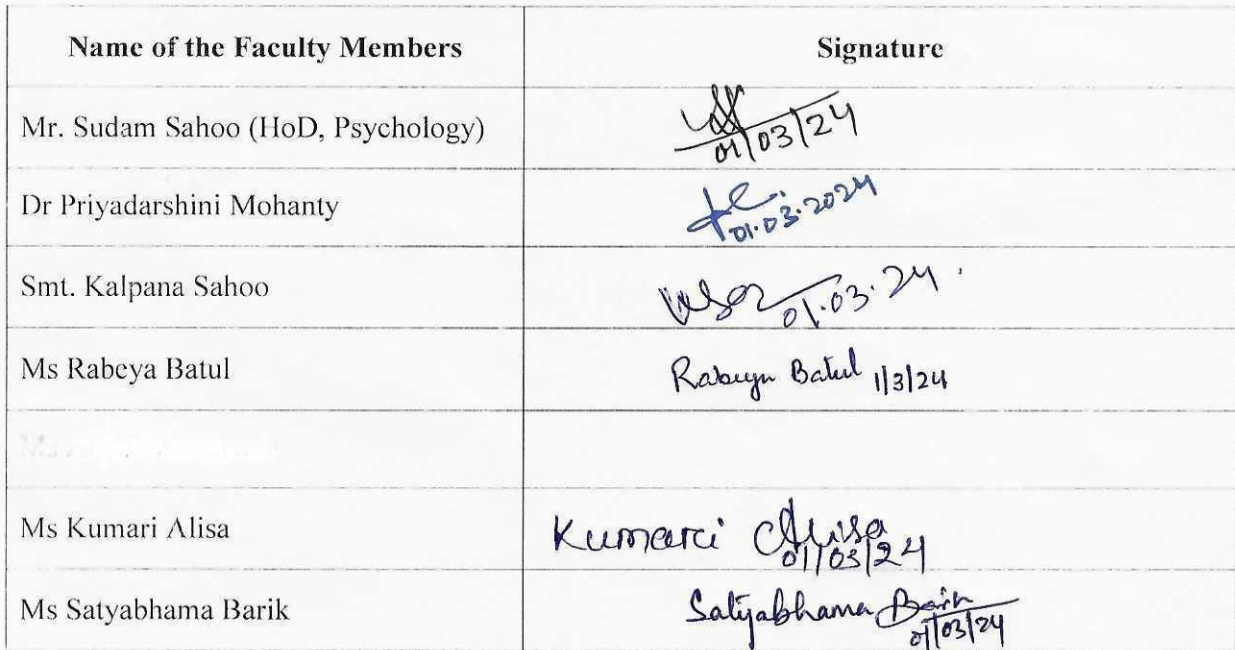 Name of the Faculty Members Signature
Mr. Sudam Sahoo (HoD, Psychology)
01/03/24
Dr Priyadarshini Mohanty
01.03.2024
Smt. Kalpana Sahoo
01.03.24
Ms Rabeya Batul Rabeya Batul 1/3/24
Ms Kumari Alisa Kumari Alisa
01/03/24
Ms Satyabhama Barik Satyabhama Barik
01/03/24